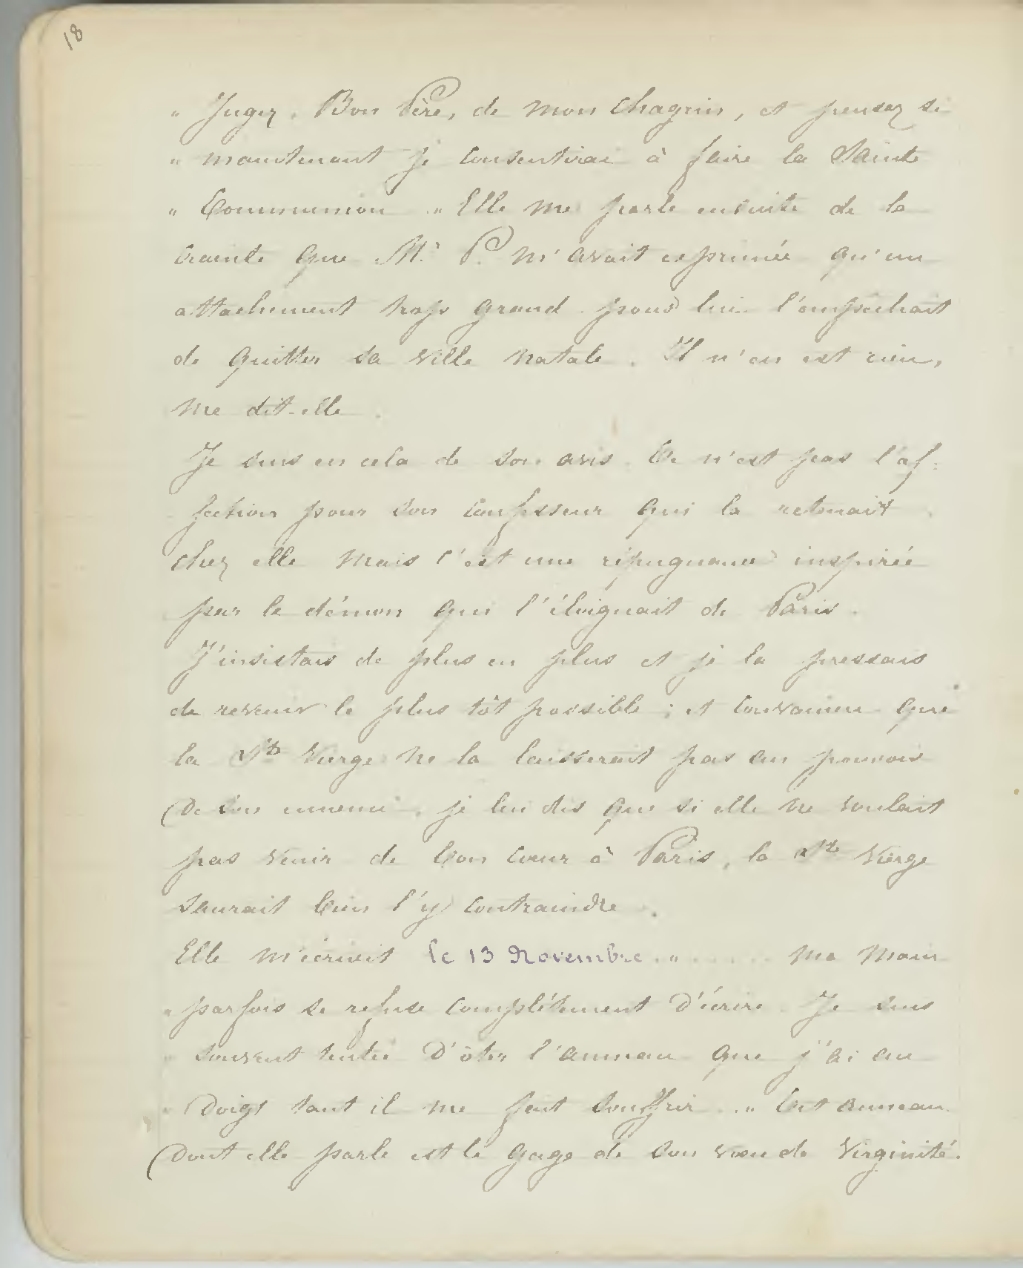 18
" Jugez, Bon Père, de mon chagrin, et pensez si
" maintenant je consentirai à faire la Sainte
" Communion " Elle me parle ensuite de la
crainte que Mr P. m'avait exprimée qu'un
attachement trop grand pour lui l'empêchait
de quitter sa ville natale. Il n'en est rien,
me dit-elle.
Je suis en cela de son avis. Ce n'est pas l'af-
fection pour son confesseur qui la retenait
chez elle mais c'est une répugnance inspirée
par le démon qui l'éloignait de Paris.
J'insistais de plus en plus et je la pressais
de revenir le plus tôt possible ; et convaincu que
la Ste Vierge ne la laisserait pas au pouvoir
de son ennemi, je lui dis que si elle ne voulait
pas venir de bon cœur à Paris, la Ste Vierge
saurait bien l'y contraindre.
Elle m'écrivit le 13 Novembre " ..... ma main
" parfois se refuse complétement d'écrire. Je suis
" souvent tentée d'ôter l'anneau que j'ai au
" doigt tant il me fait souffrir .. " Cet anneau
dont elle parle est le gage de son vœu de virginité.